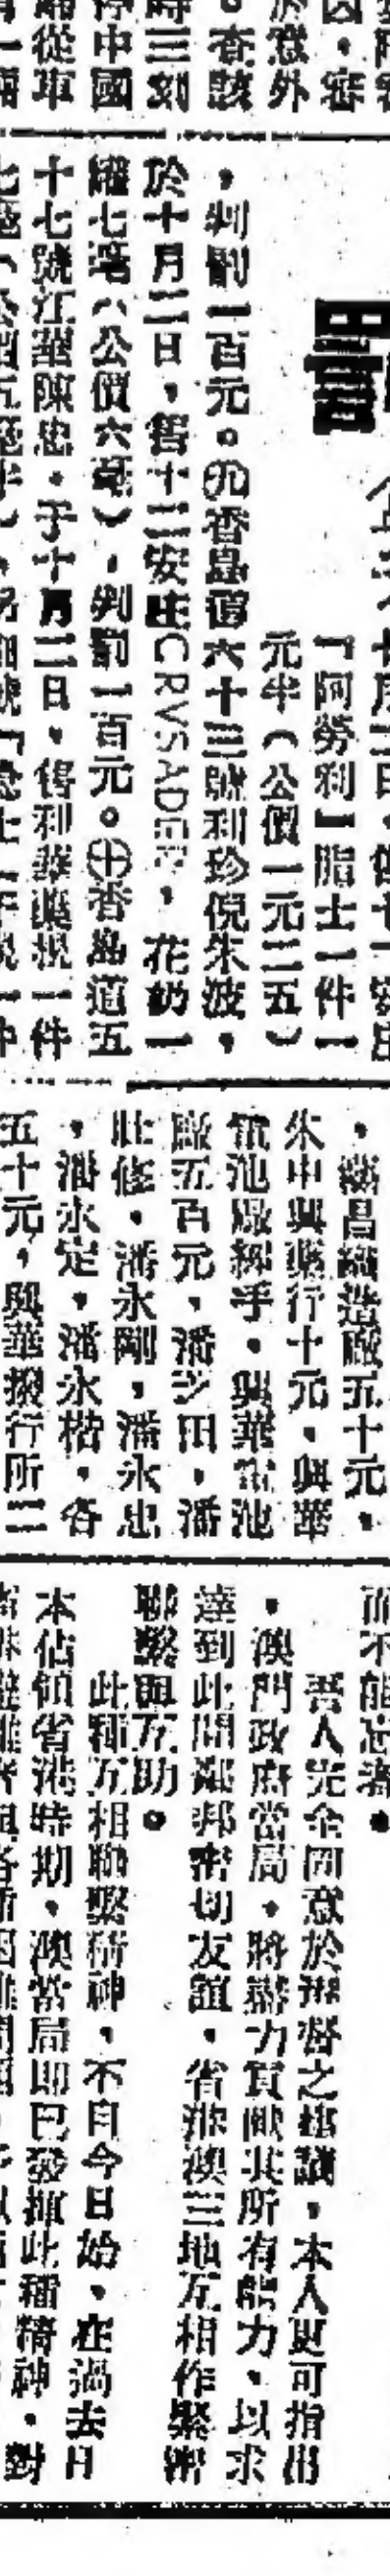 於意外
。查該
時三刻
停中國
罰
『阿勞利』脂士一件一
元半（公價一元二五）
，判罰一百元。㊈香島道六十三號利珍倪朱波，
於十月二日，售十二安庄CRVSADER，花奶一
罐七毫（公價六毫），判罰一百元。㊉香島道五
十七號江華陳忠，于十月二日，售利華藥梘一件
昌織造廠五十元，
朱中興藥行十元，興華
電池廠揦手，興華電池
廠五百元，潘少田，潘
壯修，潘永剛，潘永忠
，潘永定，潘永楷，各
五十元，興華搬行所二
而不能忘者。
吾人完全同意於港督之建議，本人更可指出
，澳門政府當局，將辦力貢獻其所有能力，以求
達到此間鄰邦密切友誼，省港澳三地互相作緊密
聯繫與互助。
此種互相聯繫精神，不自今日始，在過去日
本佔領省港時期，澳當局即已發揮此種精神，對